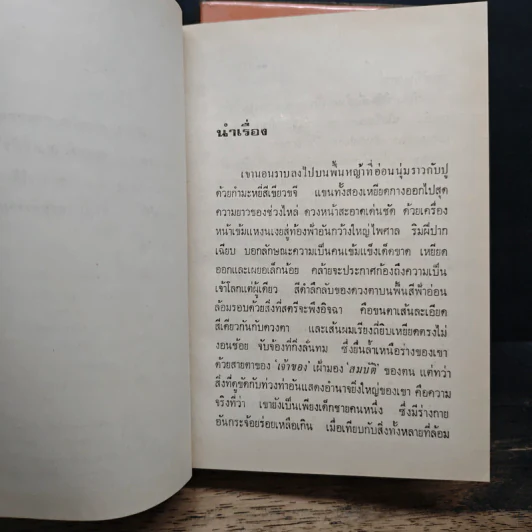 นำเรื่อง
เขานอนราบลงไปบนพื้นหญ้าที่อ่อนนุ่มราวกับปู
ด้วยกำมะหยี่สีเขียวขจี แขนทั้งสองเหยียดกางออกไปสุด
ความยาวของช่วงไหล่ ดวงหน้าสะอาดเด่นชัด ด้วยเครื่อง
หน้าเข้มแหงนเงยสู่ท้องฟ้าอันกว้างใหญ่ไพศาล ริมฝีปาก
เฉียบ บอกลักษณะความเป็นคนเข้มแข็งเด็ดขาด เหยียด
ออกและเผยอเล็กน้อย คล้ายจะประกาศก้องถึงความเป็น
เจ้าโลกแต่ผู้เดียว สีดำลึกลับของดวงตาบนพื้นสีฟ้าอ่อน
ล้อมรอบด้วยสิ่งที่สตรีจะพึงอิจฉา คือขนตาเส้นละเอียด
สีเดียวกันกับดวงตา และเส้นผมเรียงถี่ยิบเหยียดตรงไม่
งอนช้อย จับจ้องที่กิ่งลั่นทม ซึ่งยื่นล้ำเหนือร่างของเขา
ด้วยสายตาของ 'เจ้าของ' เฝ้ามอง 'สมบัติ' ของตน แต่ทว่า
สิ่งที่ดูขัดกับท่วงท่าอันแสดงอำนาจยิ่งใหญ่ของเขา คือความ
จริงที่ว่า เขายังเป็นเพียงเด็กชายคนหนึ่ง ซึ่งมีร่างกาย
อันกระจ้อยร่อยเหลือเกิน เมื่อเทียบกับสิ่งทั้งหลายที่ล้อม